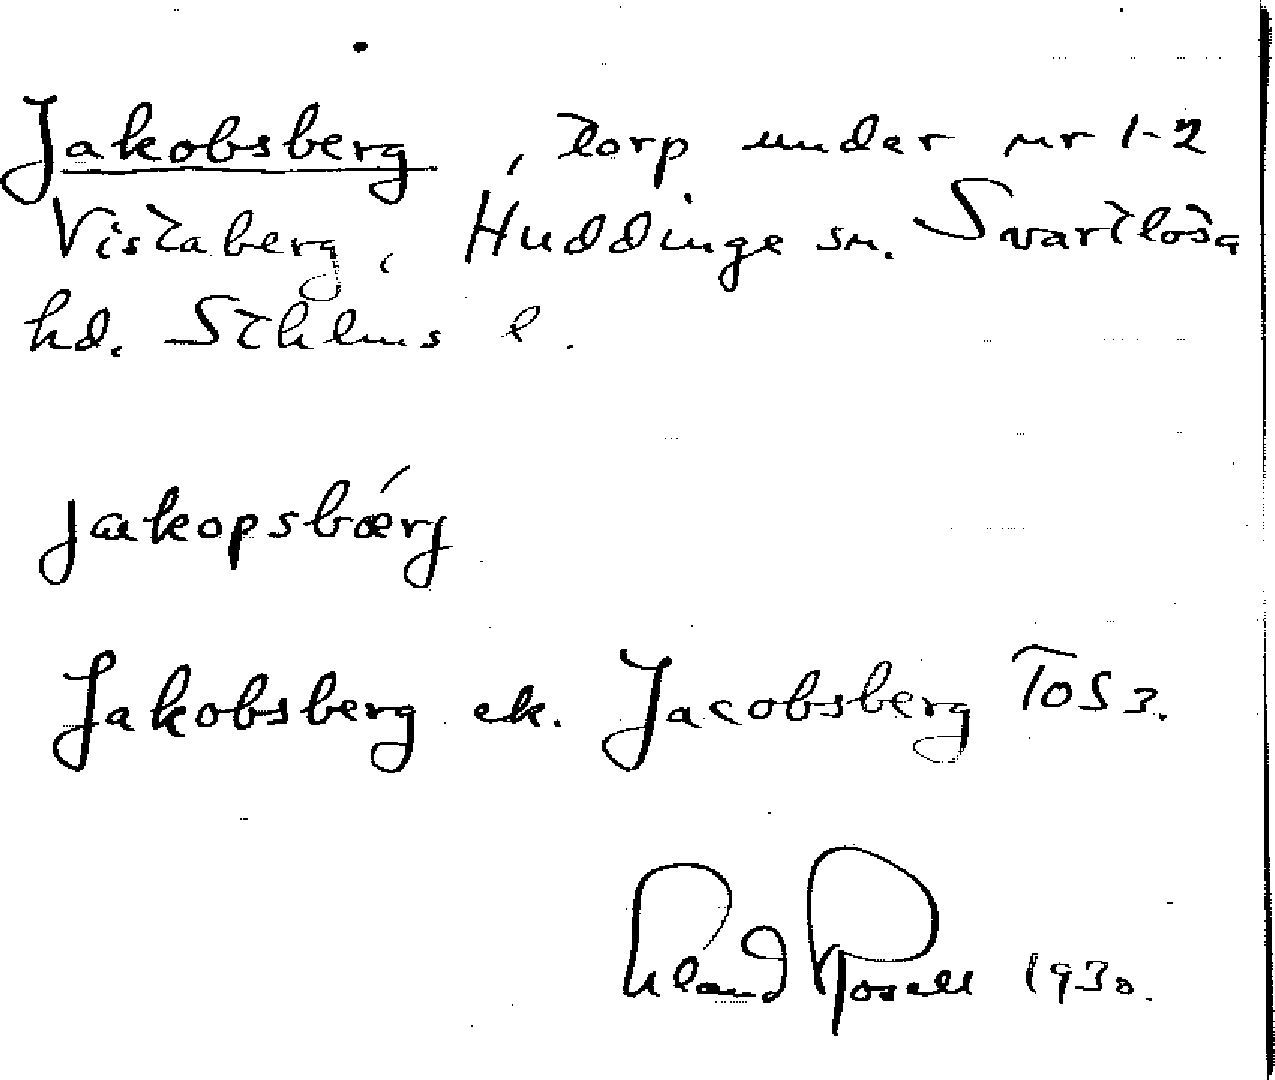 Jakobsberg, torp under nr 1-2
Vistaberg, Huddinge sn. Svartlösa
hd. Sthlms l.
jakopsbærj
Jakobsberg ek. Jacobsberg TOS 3.
Erland Rosell 1930.